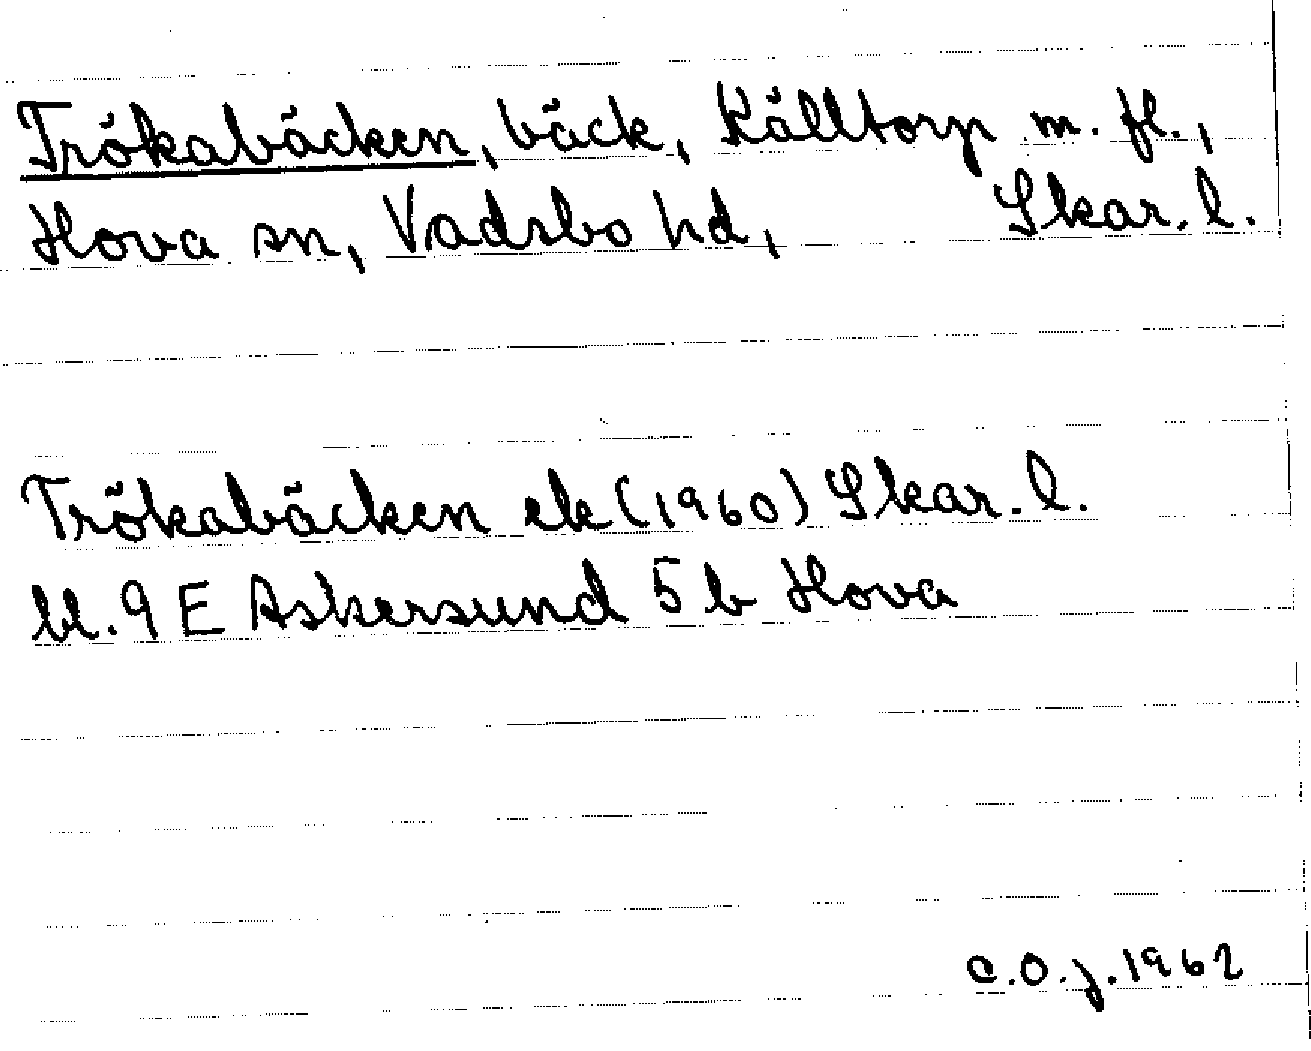 Trökabäcken, bäck, Källtorp m. fl.,
Hova sn, Vadsbo hd, Skar. l.
Trökabäcken ek (1960) Skar. l.
bl. 9 E Askersund 5 b Hova
C.O.j. 1962